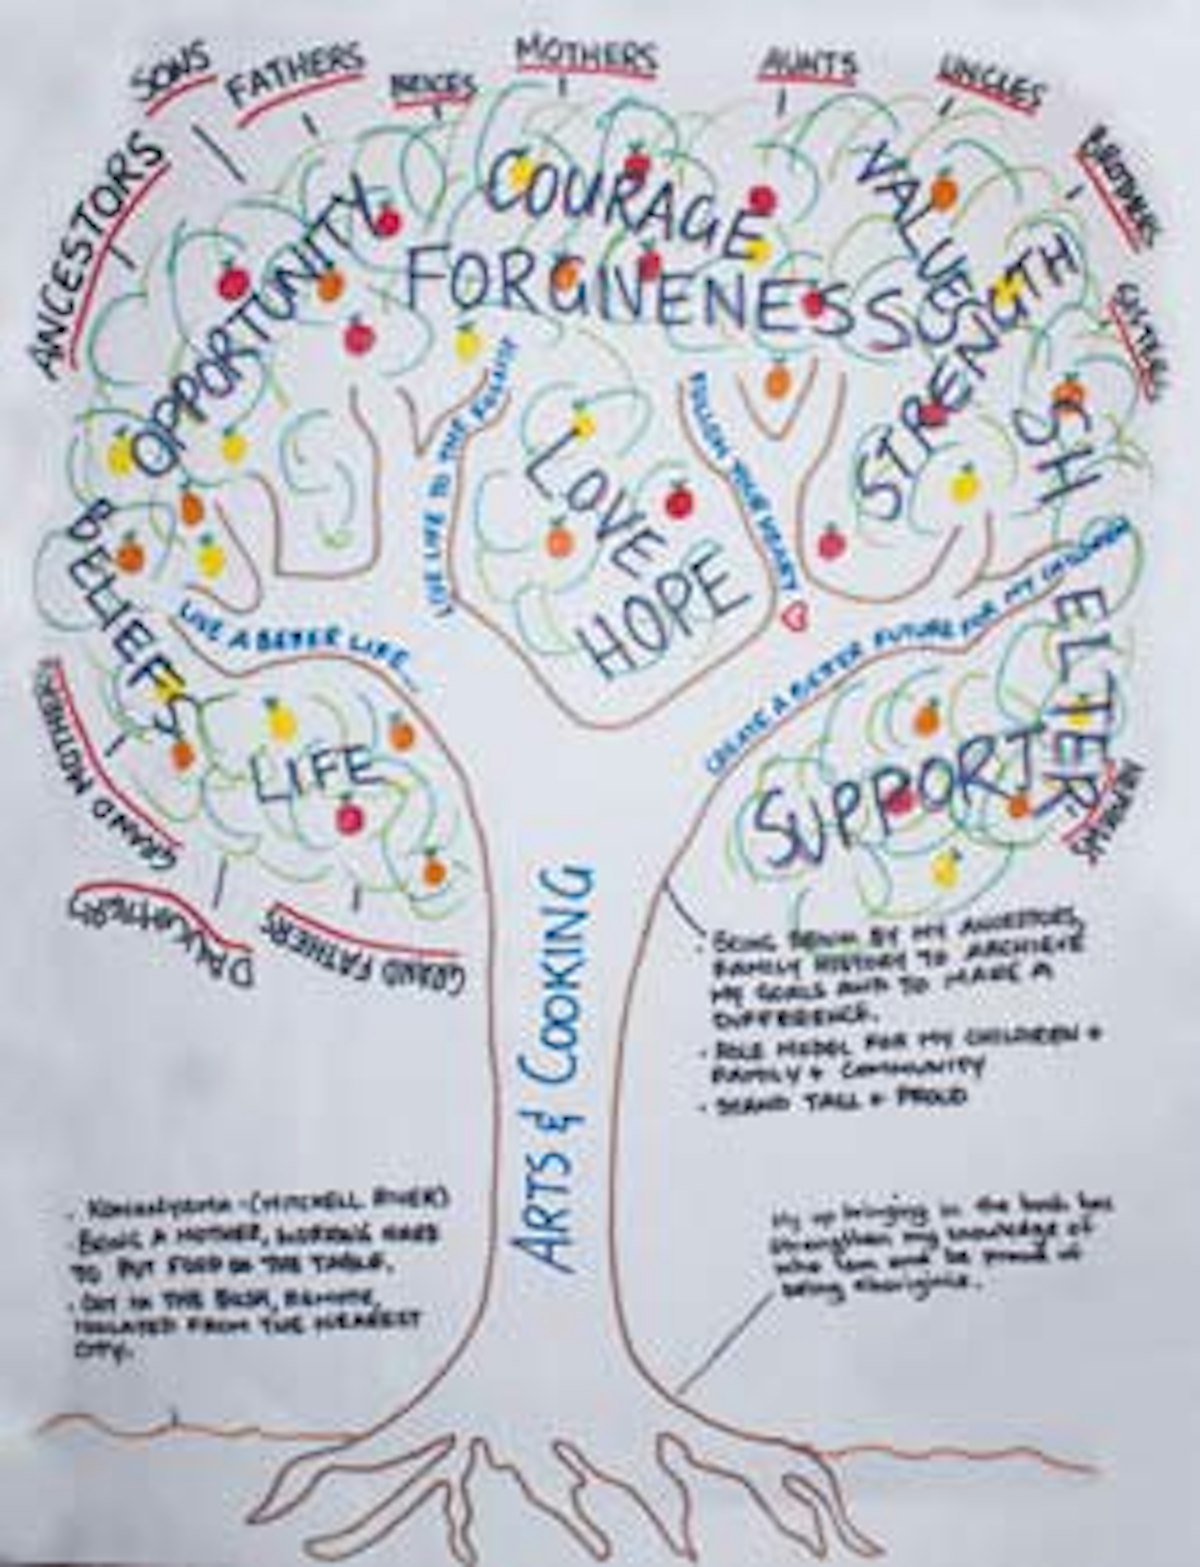 SONS
FATHERS
NEICES
MOTHERS
AUNTS
UNCLES
BROTHERS
SISTERS
ANCESTORS
OPPORTUNITY
COURAGE
FORGIVENESS
VALUES
STRENGTH
SHELTER
BELIEFS
LOVE
HOPE
LIVE LIFE TO THE
FOLLOW YOUR HEART
LIVE A BETTER LIFE...
CREATE A BETTER FUTURE FOR MY CHILDREN
LIFE
SUPPORT
GRAND MOTHERS
DAUGHTERS
GRAND FATHERS
NEPHEWS
ARTS & COOKING
· BEING BY MY ANCESTORS,
FAMILY HISTORY TO ARCHIEVE
MY GOALS AND TO MAKE A
DIFFERENCE.
· ROLE MODEL FOR MY CHILDREN +
FAMILY + COMMUNITY
· STAND TALL + PROUD
· -(MITCHELL RIVER)
· BEING A MOTHER, WORKING HARD
TO PUT FOOD ON THE TABLE.
· OUT IN THE BUSH, REMOTE,
ISOLATED FROM THE NEAREST
CITY.
My up bringing in the bush has
strengthen my knowledge of
who I am and be proud of
being aboriginie.